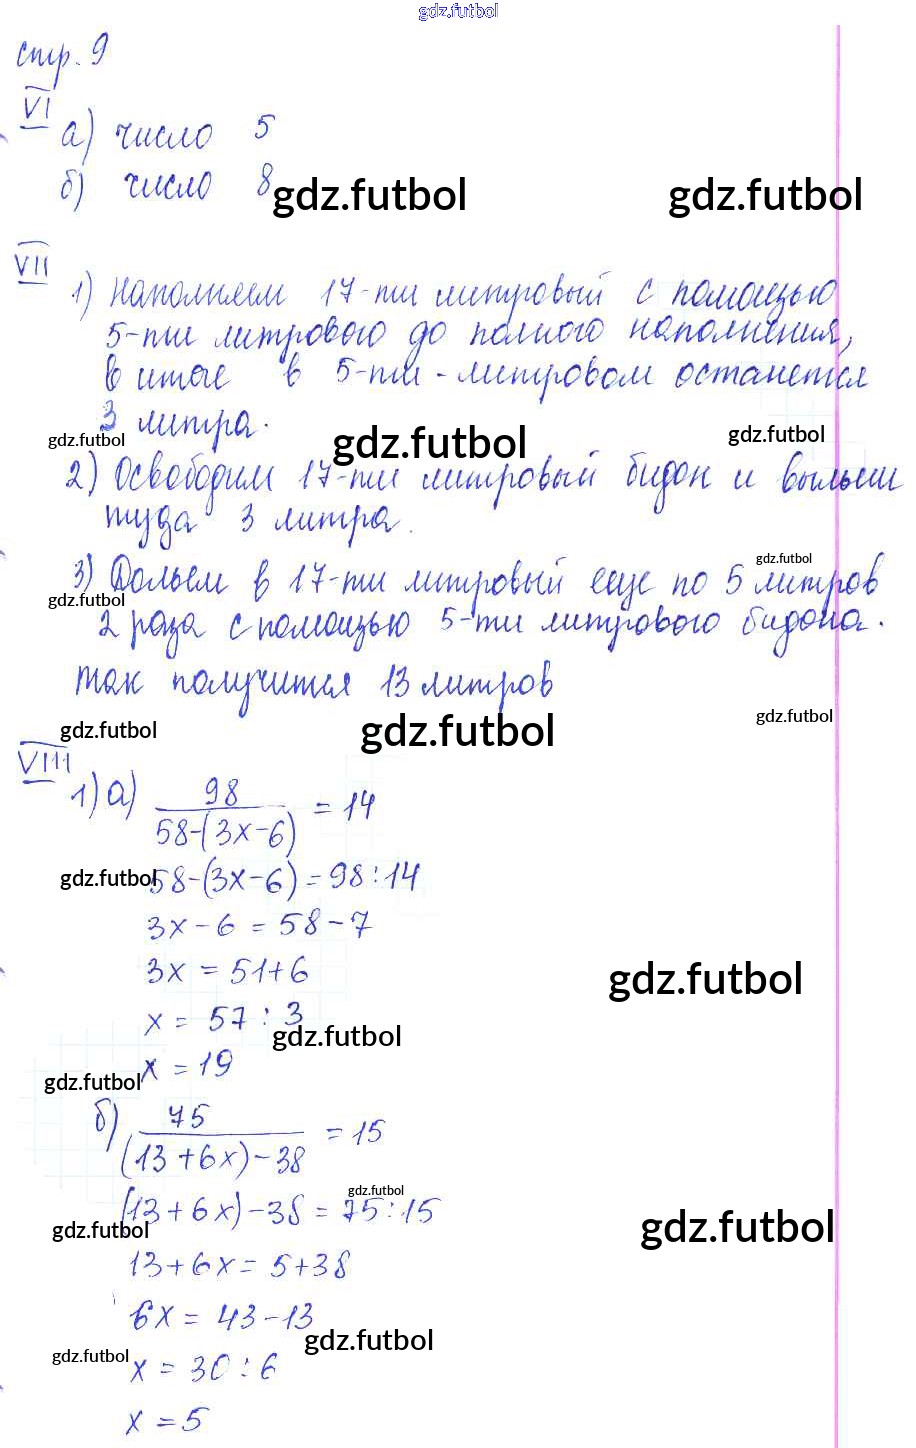 gdz.futbol
стр. 9
VI
а) число 5
б) число 8
gdz.futbol gdz.futbol
VII
1) Наполняем 17-ти литровый с помощью
5-ти литрового до полного наполнения,
в итоге в 5-ти-литровом останется
3 литра.
gdz.futbol gdz.futbol gdz.futbol
2) Освободим 17-ти литровый бидон и выльем
туда 3 литра.
gdz.futbol
3) Дольем в 17-ти литровый еще по 5 литров
gdz.futbol
2 раза с помощью 5-ти литрового бидона.
так получится 13 литров
gdz.futbol gdz.futbol gdz.futbol
VIII
1) а) 98
58-(3x-6) = 14
gdz.futbol 58-(3x-6) = 98:14
3x-6 = 58-7
3x = 51+6
gdz.futbol
x = 57 : 3
gdz.futbol
x = 19
gdz.futbol
б) 75
(13+6x)-38 = 15
gdz.futbol
(13+6x)-38 = 75:15
gdz.futbol gdz.futbol
13+6x = 5+38
6x = 43-13
gdz.futbol
gdz.futbol x = 30 : 6
x = 5